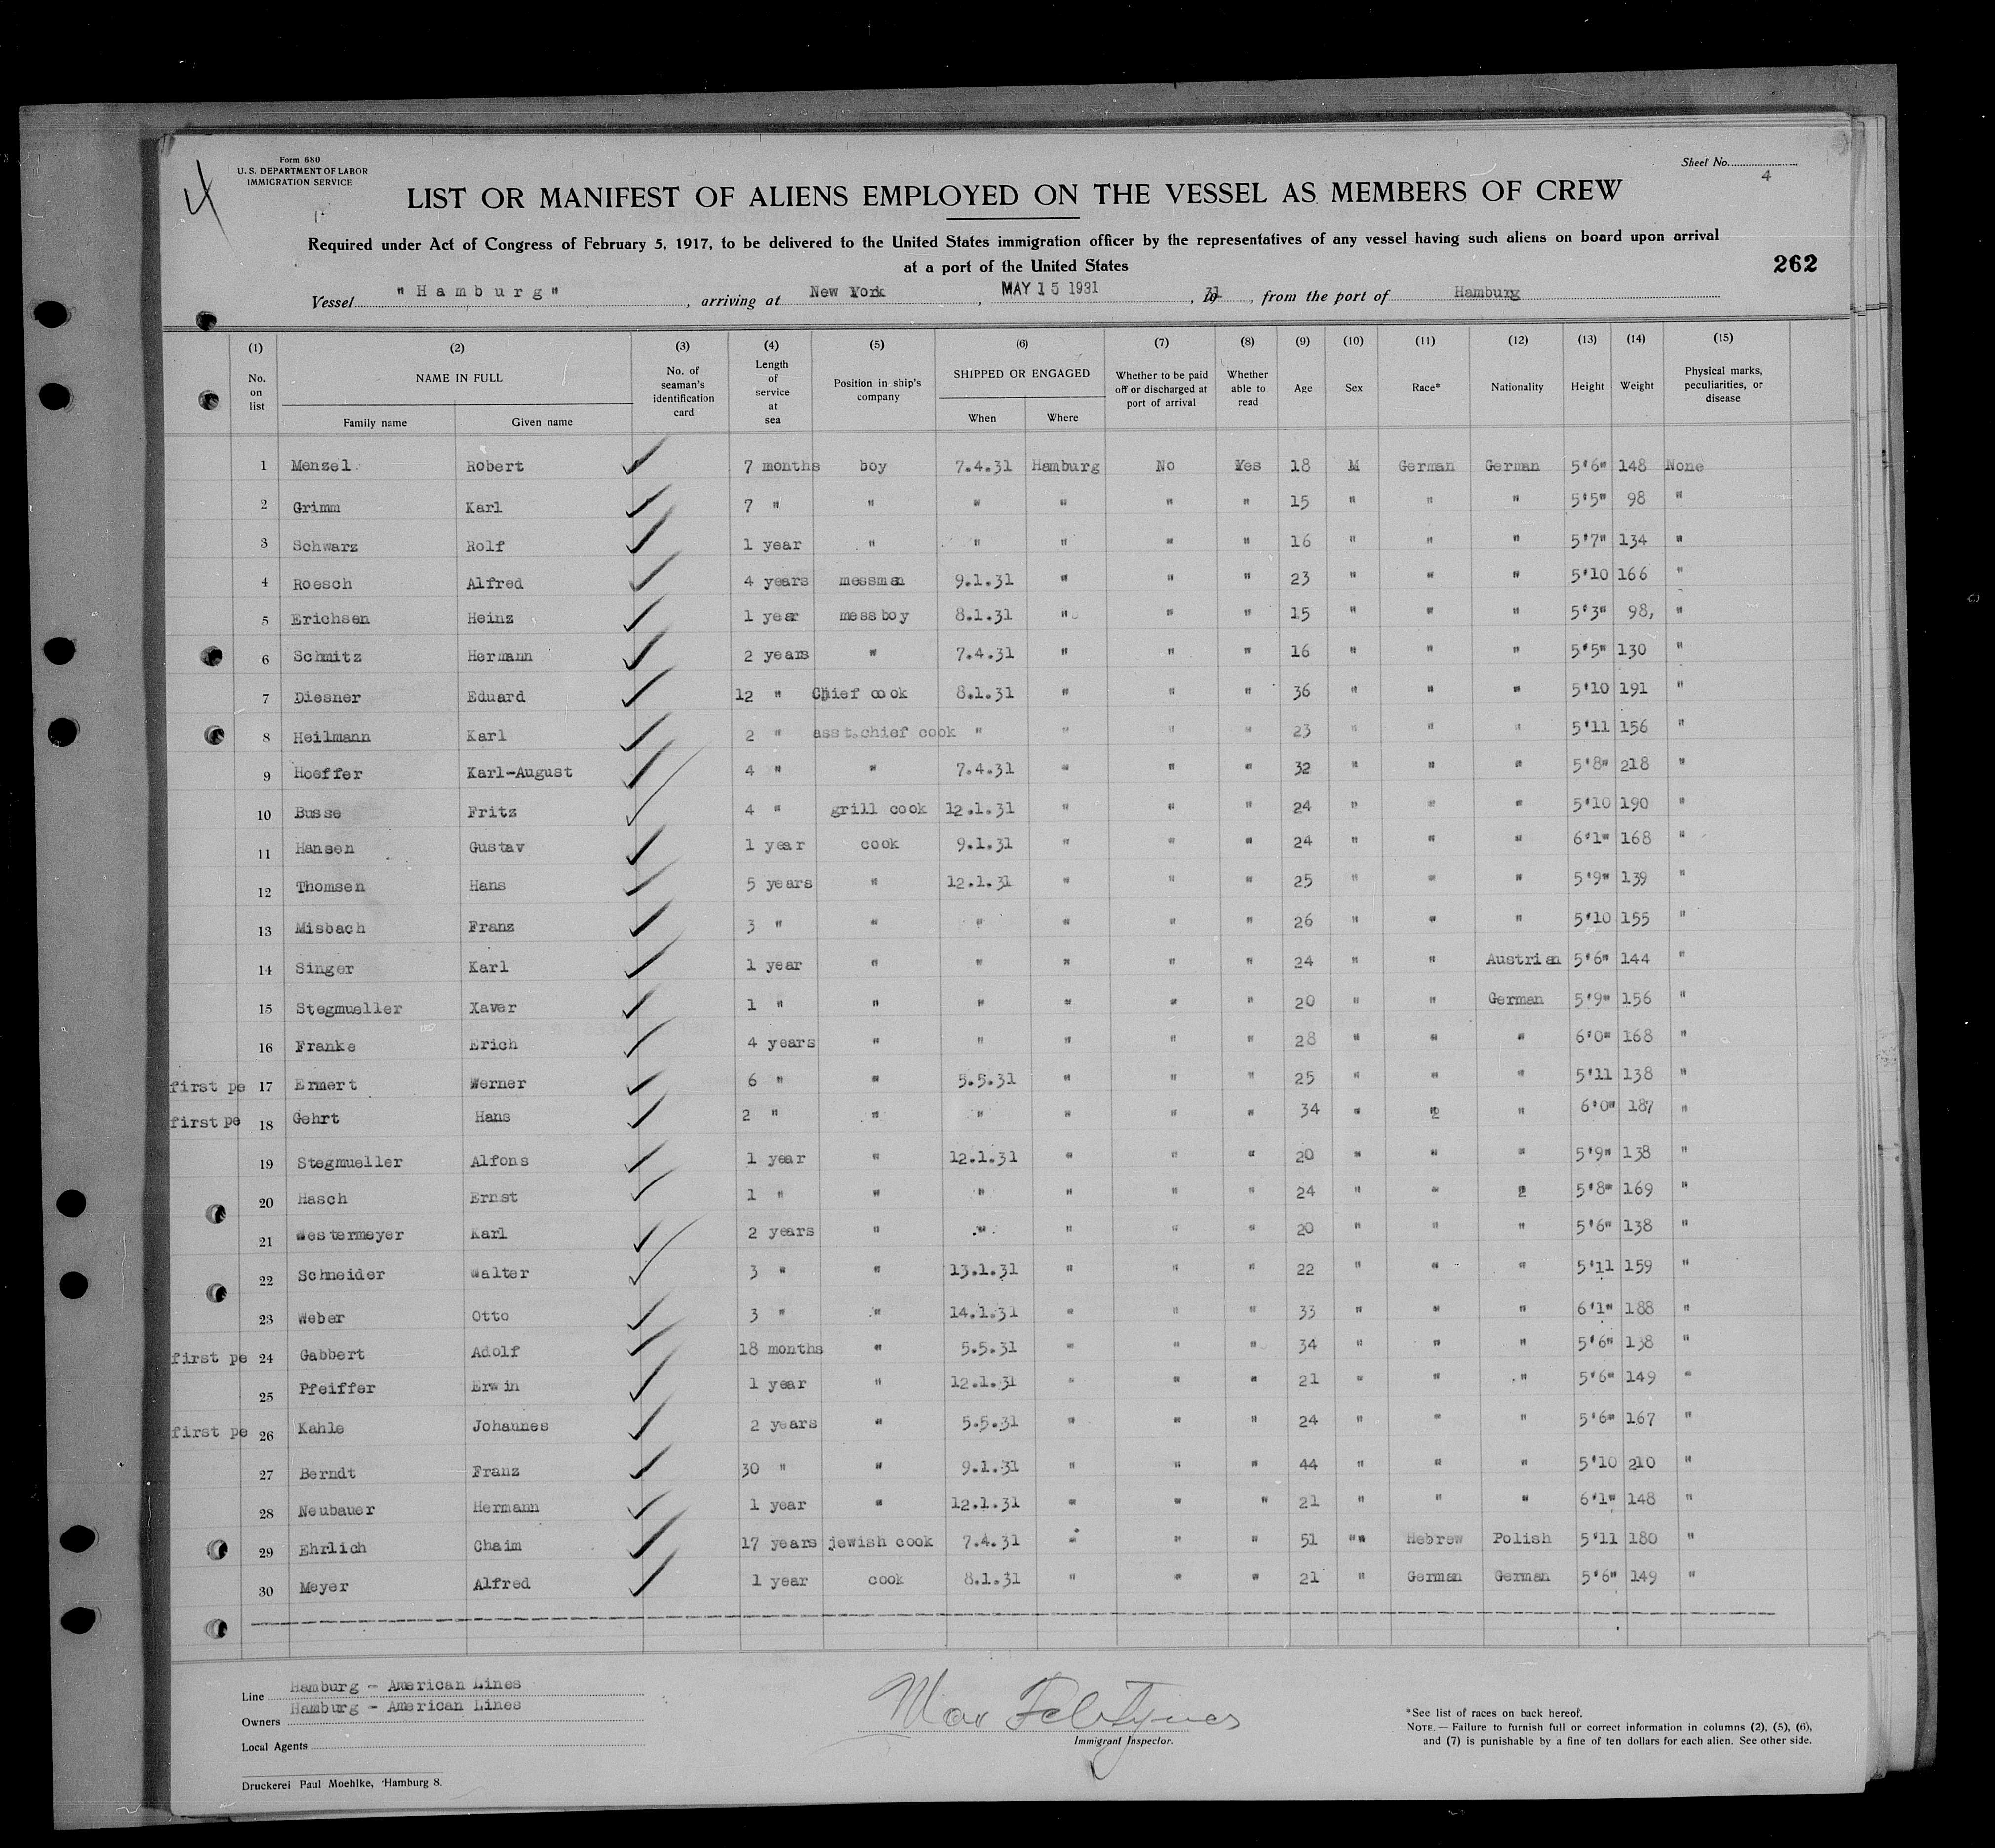 4
Form 680
U. S. DEPARTMENT OF LABOR
IMMIGRATION SERVICE
Sheet No. 4
LIST OR MANIFEST OF ALIENS EMPLOYED ON THE VESSEL AS MEMBERS OF CREW
Required under Act of Congress of February 5, 1917, to be delivered to the United States immigration officer by the representatives of any vessel having such aliens on board upon arrival
at a port of the United States
262
Vessel " H a m b u r g " , arriving at New York , MAY 15 1931 , 31 , from the port of Hamburg
(1) (2) (3) (4) (5) (6) (7) (8) (9) (10) (11) (12) (13) (14) (15)
No. on list NAME IN FULL Family name Given name No. of seaman's identification card Length of service at sea Position in ship's company SHIPPED OR ENGAGED When Where Whether to be paid off or discharged at port of arrival Whether able to read Age Sex Race* Nationality Height Weight Physical marks, peculiarities, or disease
1 Menzel Robert 7 months boy 7.4.31 Hamburg No Yes 18 M German German 5'6" 148 None
2 Grimm Karl 7 " " " " " " 15 " " " 5'5" 98 "
3 Schwarz Rolf 1 year " " " " " 16 " " " 5'7" 134 "
4 Roesch Alfred 4 years messman 9.1.31 " " " 23 " " " 5'10 166 "
5 Erichsen Heinz 1 year messboy 8.1.31 " " " 15 " " " 5'3" 98, "
6 Schmitz Hermann 2 years " 7.4.31 " " " 16 " " " 5'5" 130 "
7 Diesner Eduard 12 " Chief cook 8.1.31 " " " 36 " " " 5'10 191 "
8 Heilmann Karl 2 " asst.chief cook " " " " 23 " " " 5'11 156 "
9 Hoeffer Karl-August 4 " " 7.4.31 " " " 32 " " " 5'8" 218 "
10 Busse Fritz 4 " grill cook 12.1.31 " " " 24 " " " 5'10 190 "
11 Hansen Gustav 1 year cook 9.1.31 " " " 24 " " " 6'1" 168 "
12 Thomsen Hans 5 years " 12.1.31 " " " 25 " " " 5'9" 139 "
13 Misbach Franz 3 " " " " " " 26 " " " 5'10 155 "
14 Singer Karl 1 year " " " " " 24 " " Austrian 5'6" 144 "
15 Stegmueller Xaver 1 " " " " " " 20 " " German 5'9" 156 "
16 Franke Erich 4 years " " " " " 28 " " " 6'0" 168 "
first pe 17 Ermert Werner 6 " " 5.5.31 " " " 25 " " " 5'11 138 "
first pe 18 Gehrt Hans 2 " " " " " " 34 " " " 6'0" 187 "
19 Stegmueller Alfons 1 year " 12.1.31 " " " 20 " " " 5'9" 138 "
20 Hasch Ernst 1 " " " " " " 24 " " " 5'8" 169 "
21 Westermeyer Karl 2 years " " " " " 20 " " " 5'6" 138 "
22 Schneider Walter 3 " " 13.1.31 " " " 22 " " " 5'11 159 "
23 Weber Otto 3 " " 14.1.31 " " " 33 " " " 6'1" 188 "
first pe 24 Gabbert Adolf 18 months " 5.5.31 " " " 34 " " " 5'6" 138 "
25 Pfeiffer Erwin 1 year " 12.1.31 " " " 21 " " " 5'6" 149 "
first pe 26 Kahle Johannes 2 years " 5.5.31 " " " 24 " " " 5'6" 167 "
27 Berndt Franz 30 " " 9.1.31 " " " 44 " " " 5'10 210 "
28 Neubauer Hermann 1 year " 12.1.31 " " " 21 " " " 6'1" 148 "
29 Ehrlich Chaim 17 years jewish cook 7.4.31 " " " 51 "" Hebrew Polish 5'11 180 "
30 Meyer Alfred 1 year cook 8.1.31 " " " 21 " German German 5'6" 149 "
Line Hamburg - American Lines
Owners Hamburg - American Lines
Local Agents
Immigrant Inspector.
*See list of races on back hereof.
NOTE. — Failure to furnish full or correct information in columns (2), (5), (6),
and (7) is punishable by a fine of ten dollars for each alien. See other side.
Druckerei Paul Moehlke, Hamburg 8.